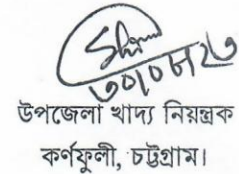 উপজেলা খাদ্য নিয়ন্ত্রক
কর্ণফুলী, চট্টগ্রাম।